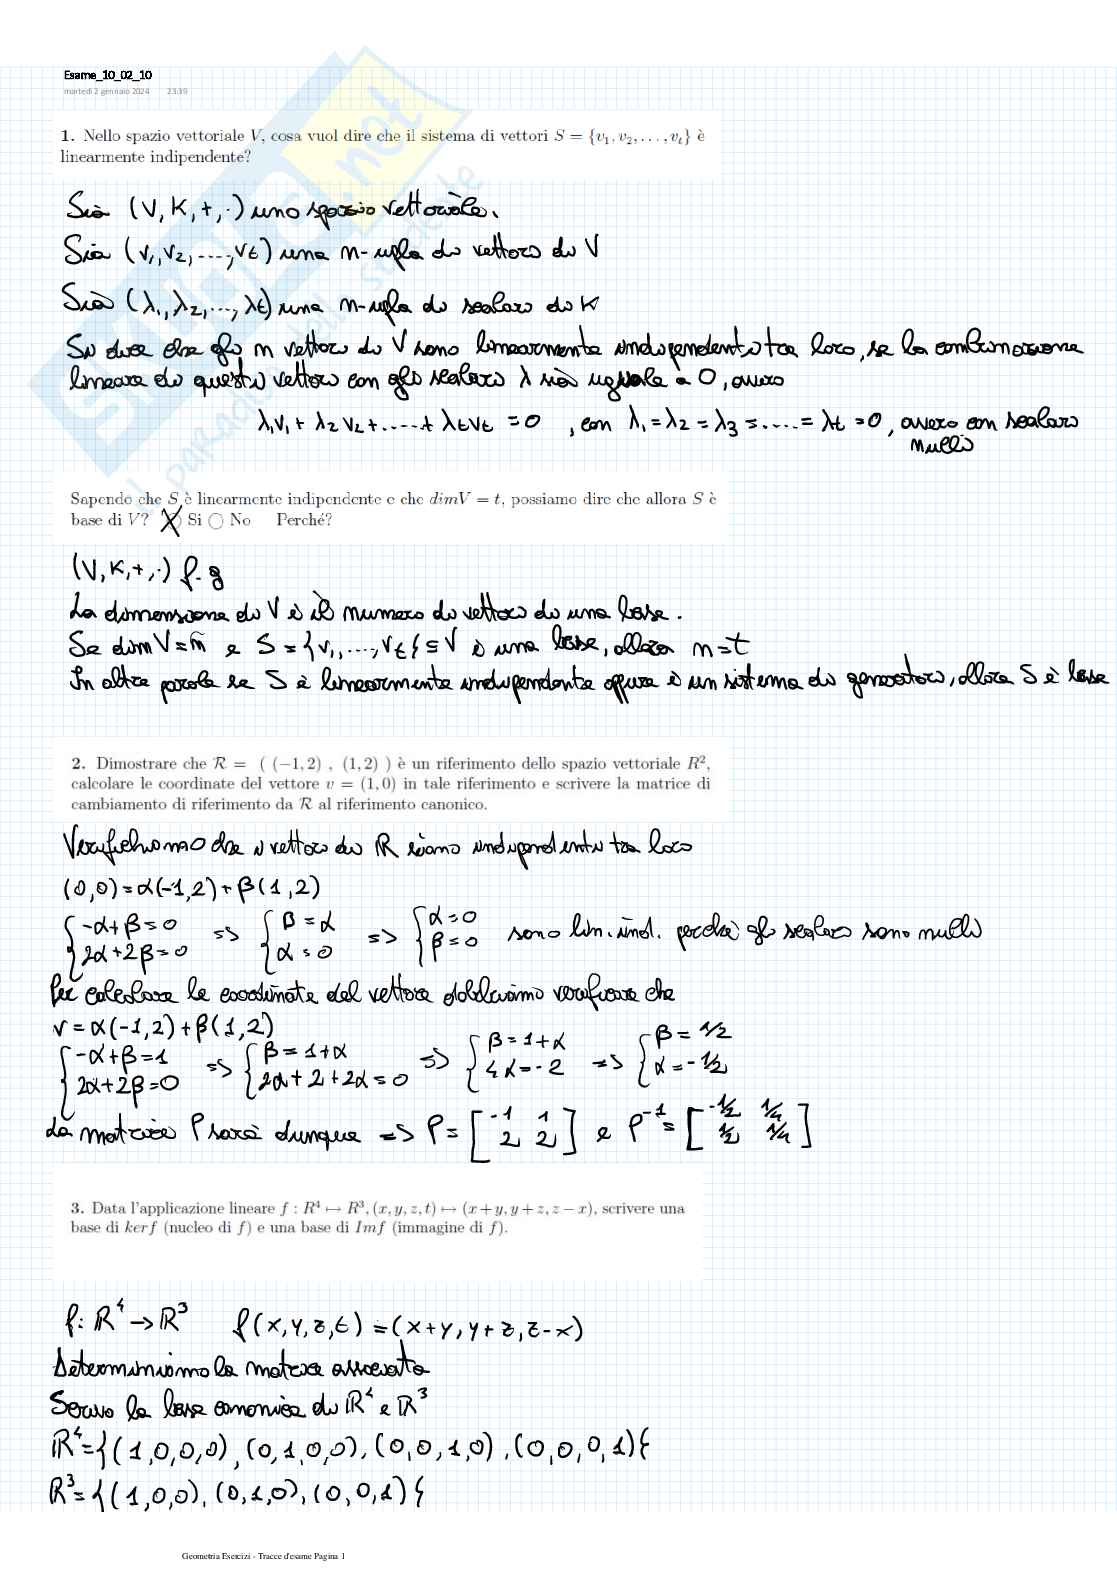 Esame_10_02_10
martedì 2 gennaio 2024 23:39
1. Nello spazio vettoriale V, cosa vuol dire che il sistema di vettori S = {v₁, v₂, . . . , vₜ} è
linearmente indipendente?
Sia (V, K, +, ·) uno spazio vettoriale.
Sia (v₁, v₂, ...., vₜ) una n-upla di vettori di V
Sia (λ₁, λ₂, ..., λₜ) una n-upla di scalari di K
Si dice che gli n vettori di V sono linearmente indipendenti tra loro, se la combinazione
lineare di questi vettori con gli scalari λ sia uguale a 0, ovvero
λ₁v₁ + λ₂v₂ + ..... + λₜvₜ = 0 , con λ₁ = λ₂ = λ₃ = .... = λₜ = 0, ovvero con scalari
nulli
Sapendo che S è linearmente indipendente e che dimV = t, possiamo dire che allora S è
base di V? X Si ○ No Perché?
(V, K, +, ·) f.g
La dimensione di V è il numero di vettori di una base.
Se dim V = n e S = {v₁, ..., vₜ} ⊆ V è una base, allora n = t
In altre parole se S è linearmente indipendente oppure è un sistema di generatori, allora S è base
2. Dimostrare che R = ( (−1, 2) , (1, 2) ) è un riferimento dello spazio vettoriale R²,
calcolare le coordinate del vettore v = (1, 0) in tale riferimento e scrivere la matrice di
cambiamento di riferimento da R al riferimento canonico.
Verifichiamo che i vettori di R siano indipendenti tra loro
(0,0) = α(-1,2) + β(1,2)
{ -α+β=0 => { β=α => { α=0 sono lin. ind. perché gli scalari sono nulli
2α+2β=0 α=0 β=0
Per calcolare le coordinate del vettore dobbiamo verificare che
v = α(-1,2) + β(1,2)
{ -α+β=1 => { β=1+α => { β=1+α => { β=1/2
2α+2β=0 2α+2+2α=0 4α=-2 α=-1/2
La matrice P sarà dunque => P = [ -1 1 ] e P⁻¹ = [ -1/2 1/4 ]
2 2 1/2 1/4
3. Data l'applicazione lineare f : R⁴ ↦ R³, (x, y, z, t) ↦ (x+y, y+z, z−x), scrivere una
base di kerf (nucleo di f) e una base di Imf (immagine di f).
f: R⁴ → R³ f(x,y,z,t) = (x+y, y+z, z-x)
Determiniamo la matrice associata
Scrivo la base canonica di R⁴ e R³
R⁴ = {(1,0,0,0), (0,1,0,0), (0,0,1,0), (0,0,0,1)}
R³ = {(1,0,0), (0,1,0), (0,0,1)}
Geometria Esercizi - Tracce d'esame Pagina 1